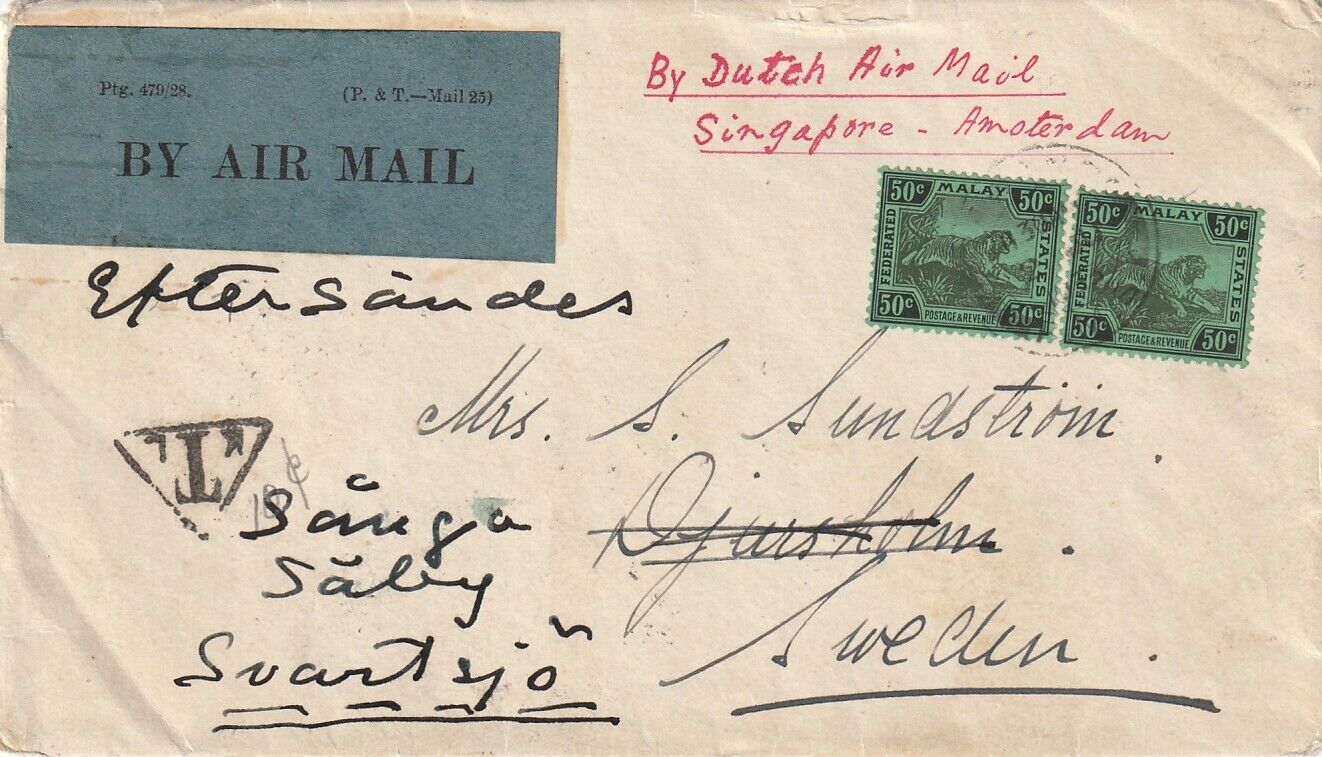 Ptg. 479/28. (P. & T.—Mail 25)
BY AIR MAIL
By Dutch Air Mail
Singapore - Amsterdam
50c MALAY 50c
FEDERATED STATES
50c POSTAGE & REVENUE 50c
50c MALAY 50c
FEDERATED STATES
50c POSTAGE & REVENUE 50c
Eftersändes
Mrs. S. Sundström.
T
Djursholm.
Sånga
Säby
Svartsjö
Sweden.